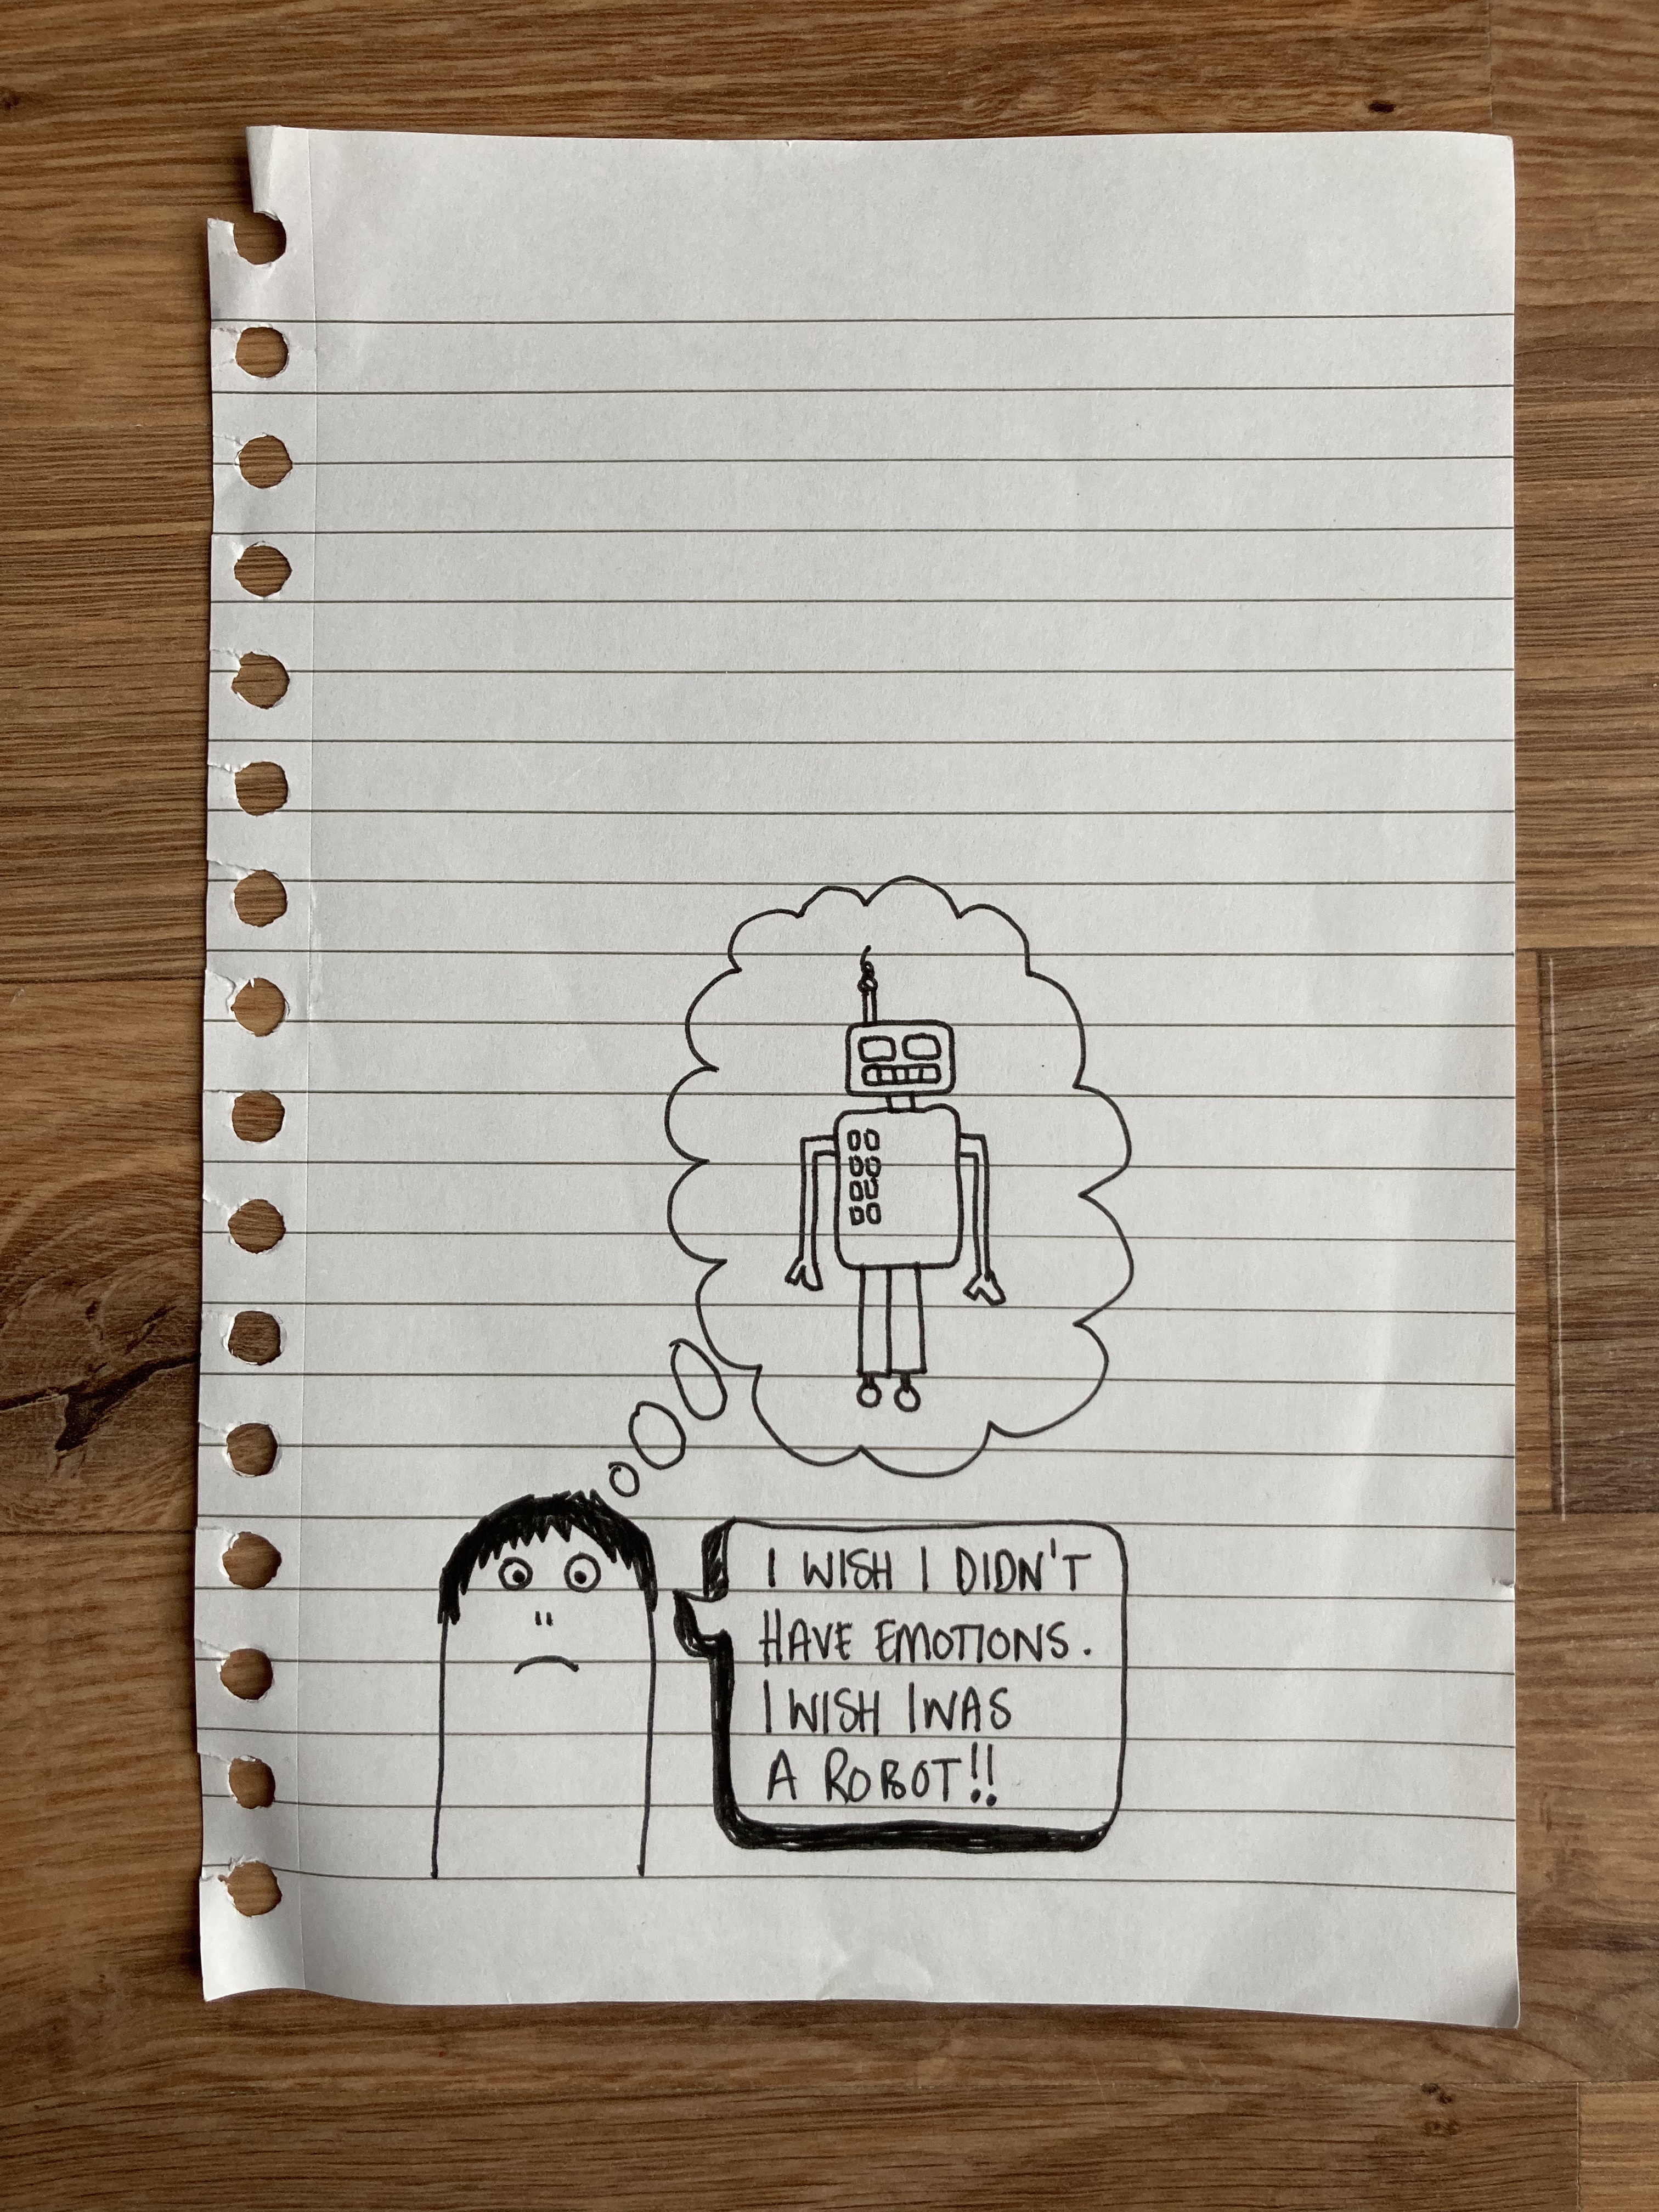 I WISH I DIDN'T
HAVE EMOTIONS.
I WISH I WAS
A ROBOT!!